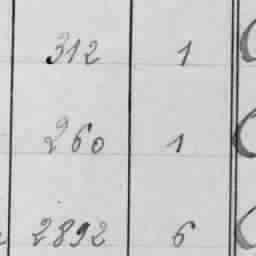 312 1
260 1
2892 6